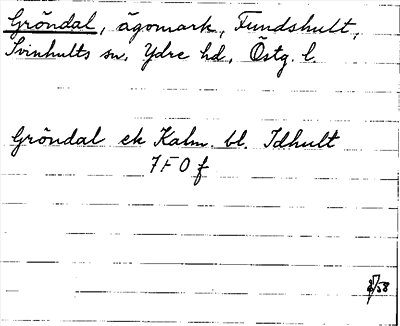 Gröndal, ägomark, Fundshult,
Svinhults sn, Ydre hd, Östg. l.
Gröndal ek Kalm. bl. Idhult
7 F 0 f